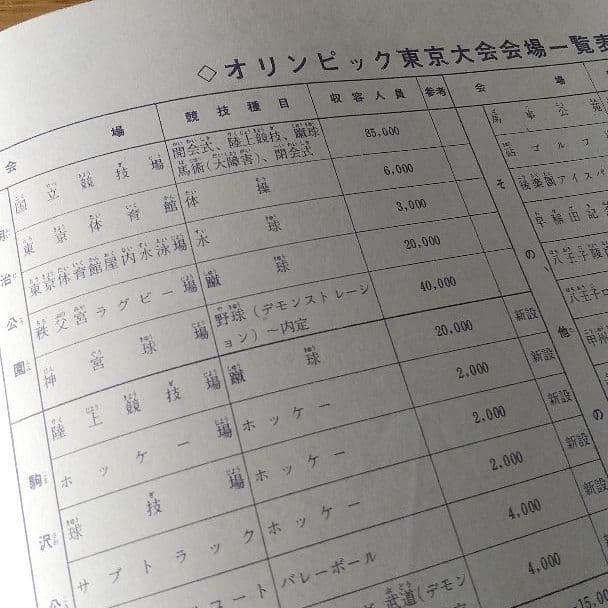 ◇オリンピック東京大会会場一覧表
会場 競技種目 収容人員 参考 会場
明治公園
国立競技場 開会式、陸上競技、蹴球 馬術(大障害)、閉会式 85,000
東京体育館 体操 6,000
東京体育館屋内水泳場 水球 3,000
秩父宮ラグビー場 蹴球 20,000
神宮球場 野球(デモンストレーション)〜内定 40,000
駒沢公
陸上競技場 蹴球 20,000 新設
ホッケー場 ホッケー 2,000 新設
球技場 ホッケー 2,000 新設
サブトラック ホッケー 2,000 新設
コート バレーボール 4,000 新設
武道(デモン 4,000
15,000
その他の
馬事公苑
ゴルフ
後楽園アイスパ
早稲田記
八王子
八王子
甲州